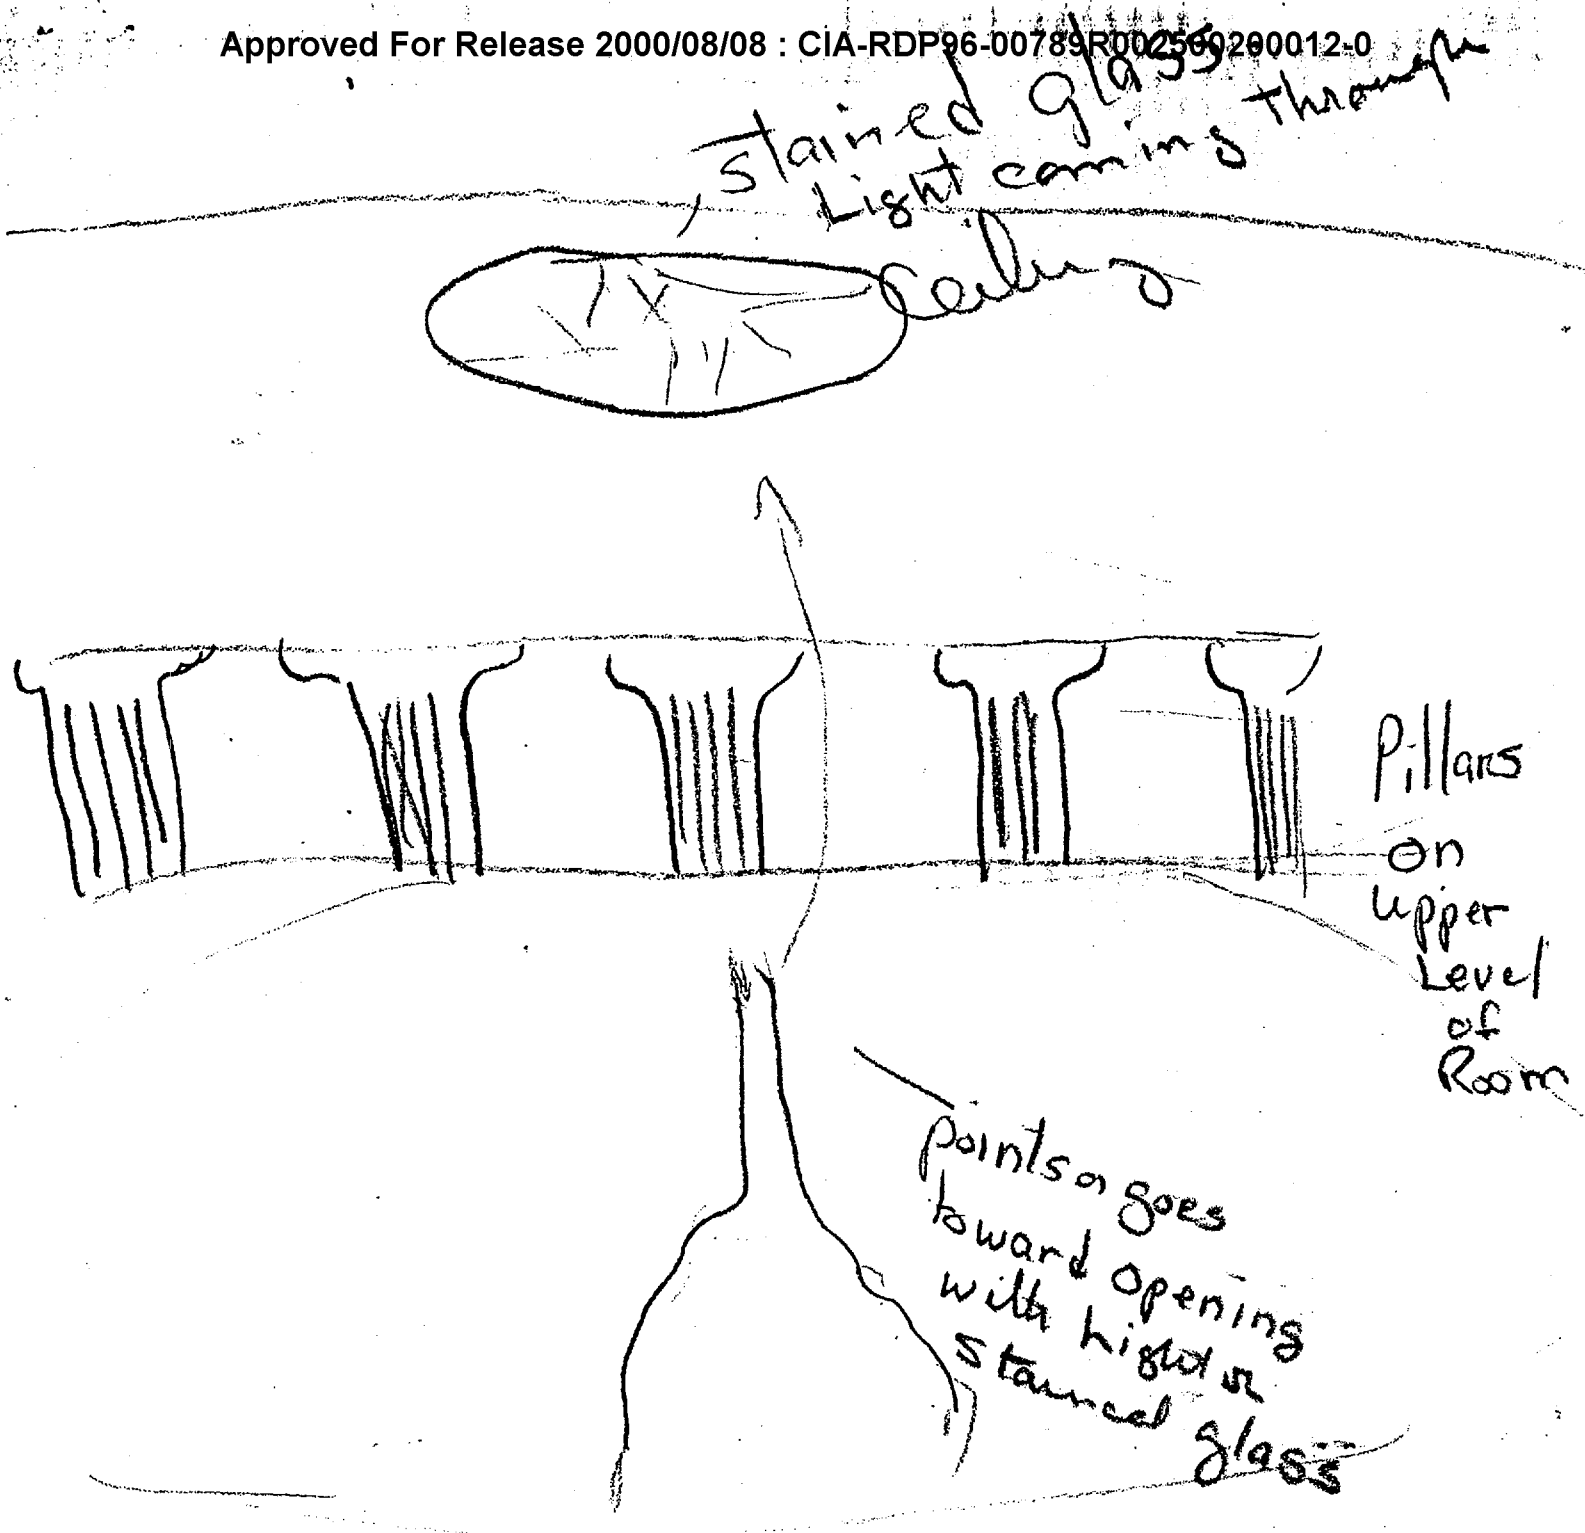 Approved For Release 2000/08/08 : CIA-RDP96-00789R002500200012-0
stained glass
Light coming through
Ceiling
Pillars
on
upper
Level
of
Room
points or goes
toward opening
with light or
stained glass